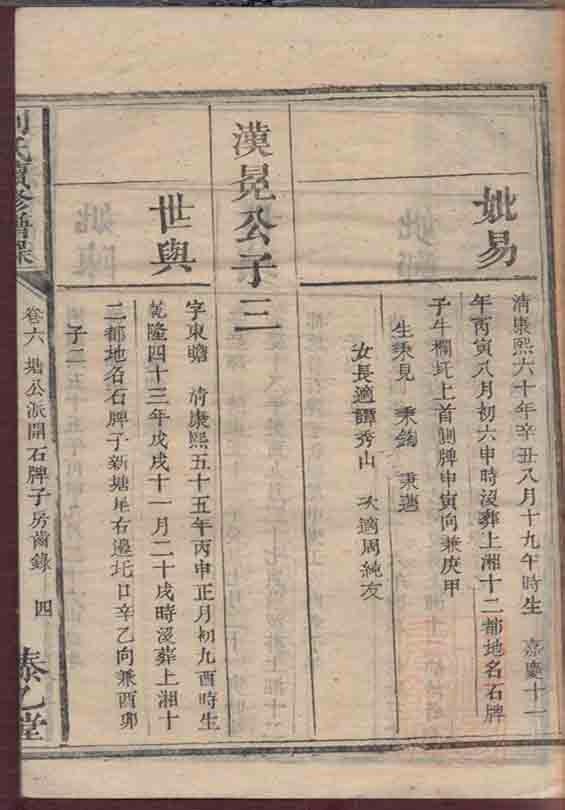 妣易
清康熙六十年辛丑八月十九午時生 嘉慶十一
年丙寅八月初六申時沒葬上湘十二都地名石牌
子牛欄坵上首側牌申寅向兼庚甲
生秉見 秉鈞 秉
女長適譚秀山 次適周純友
漢冕公子三
世與
字東瞻 清康熙五十五年丙申正月初九酉時生
乾隆四十三年戊戌十一月二十戌時沒葬上湘十
二都地名石牌子新塘尾右邊坵口辛乙向兼酉卯
子二
氏續修譜
卷六 塘公派開石牌子房齒錄 四
泰乙堂